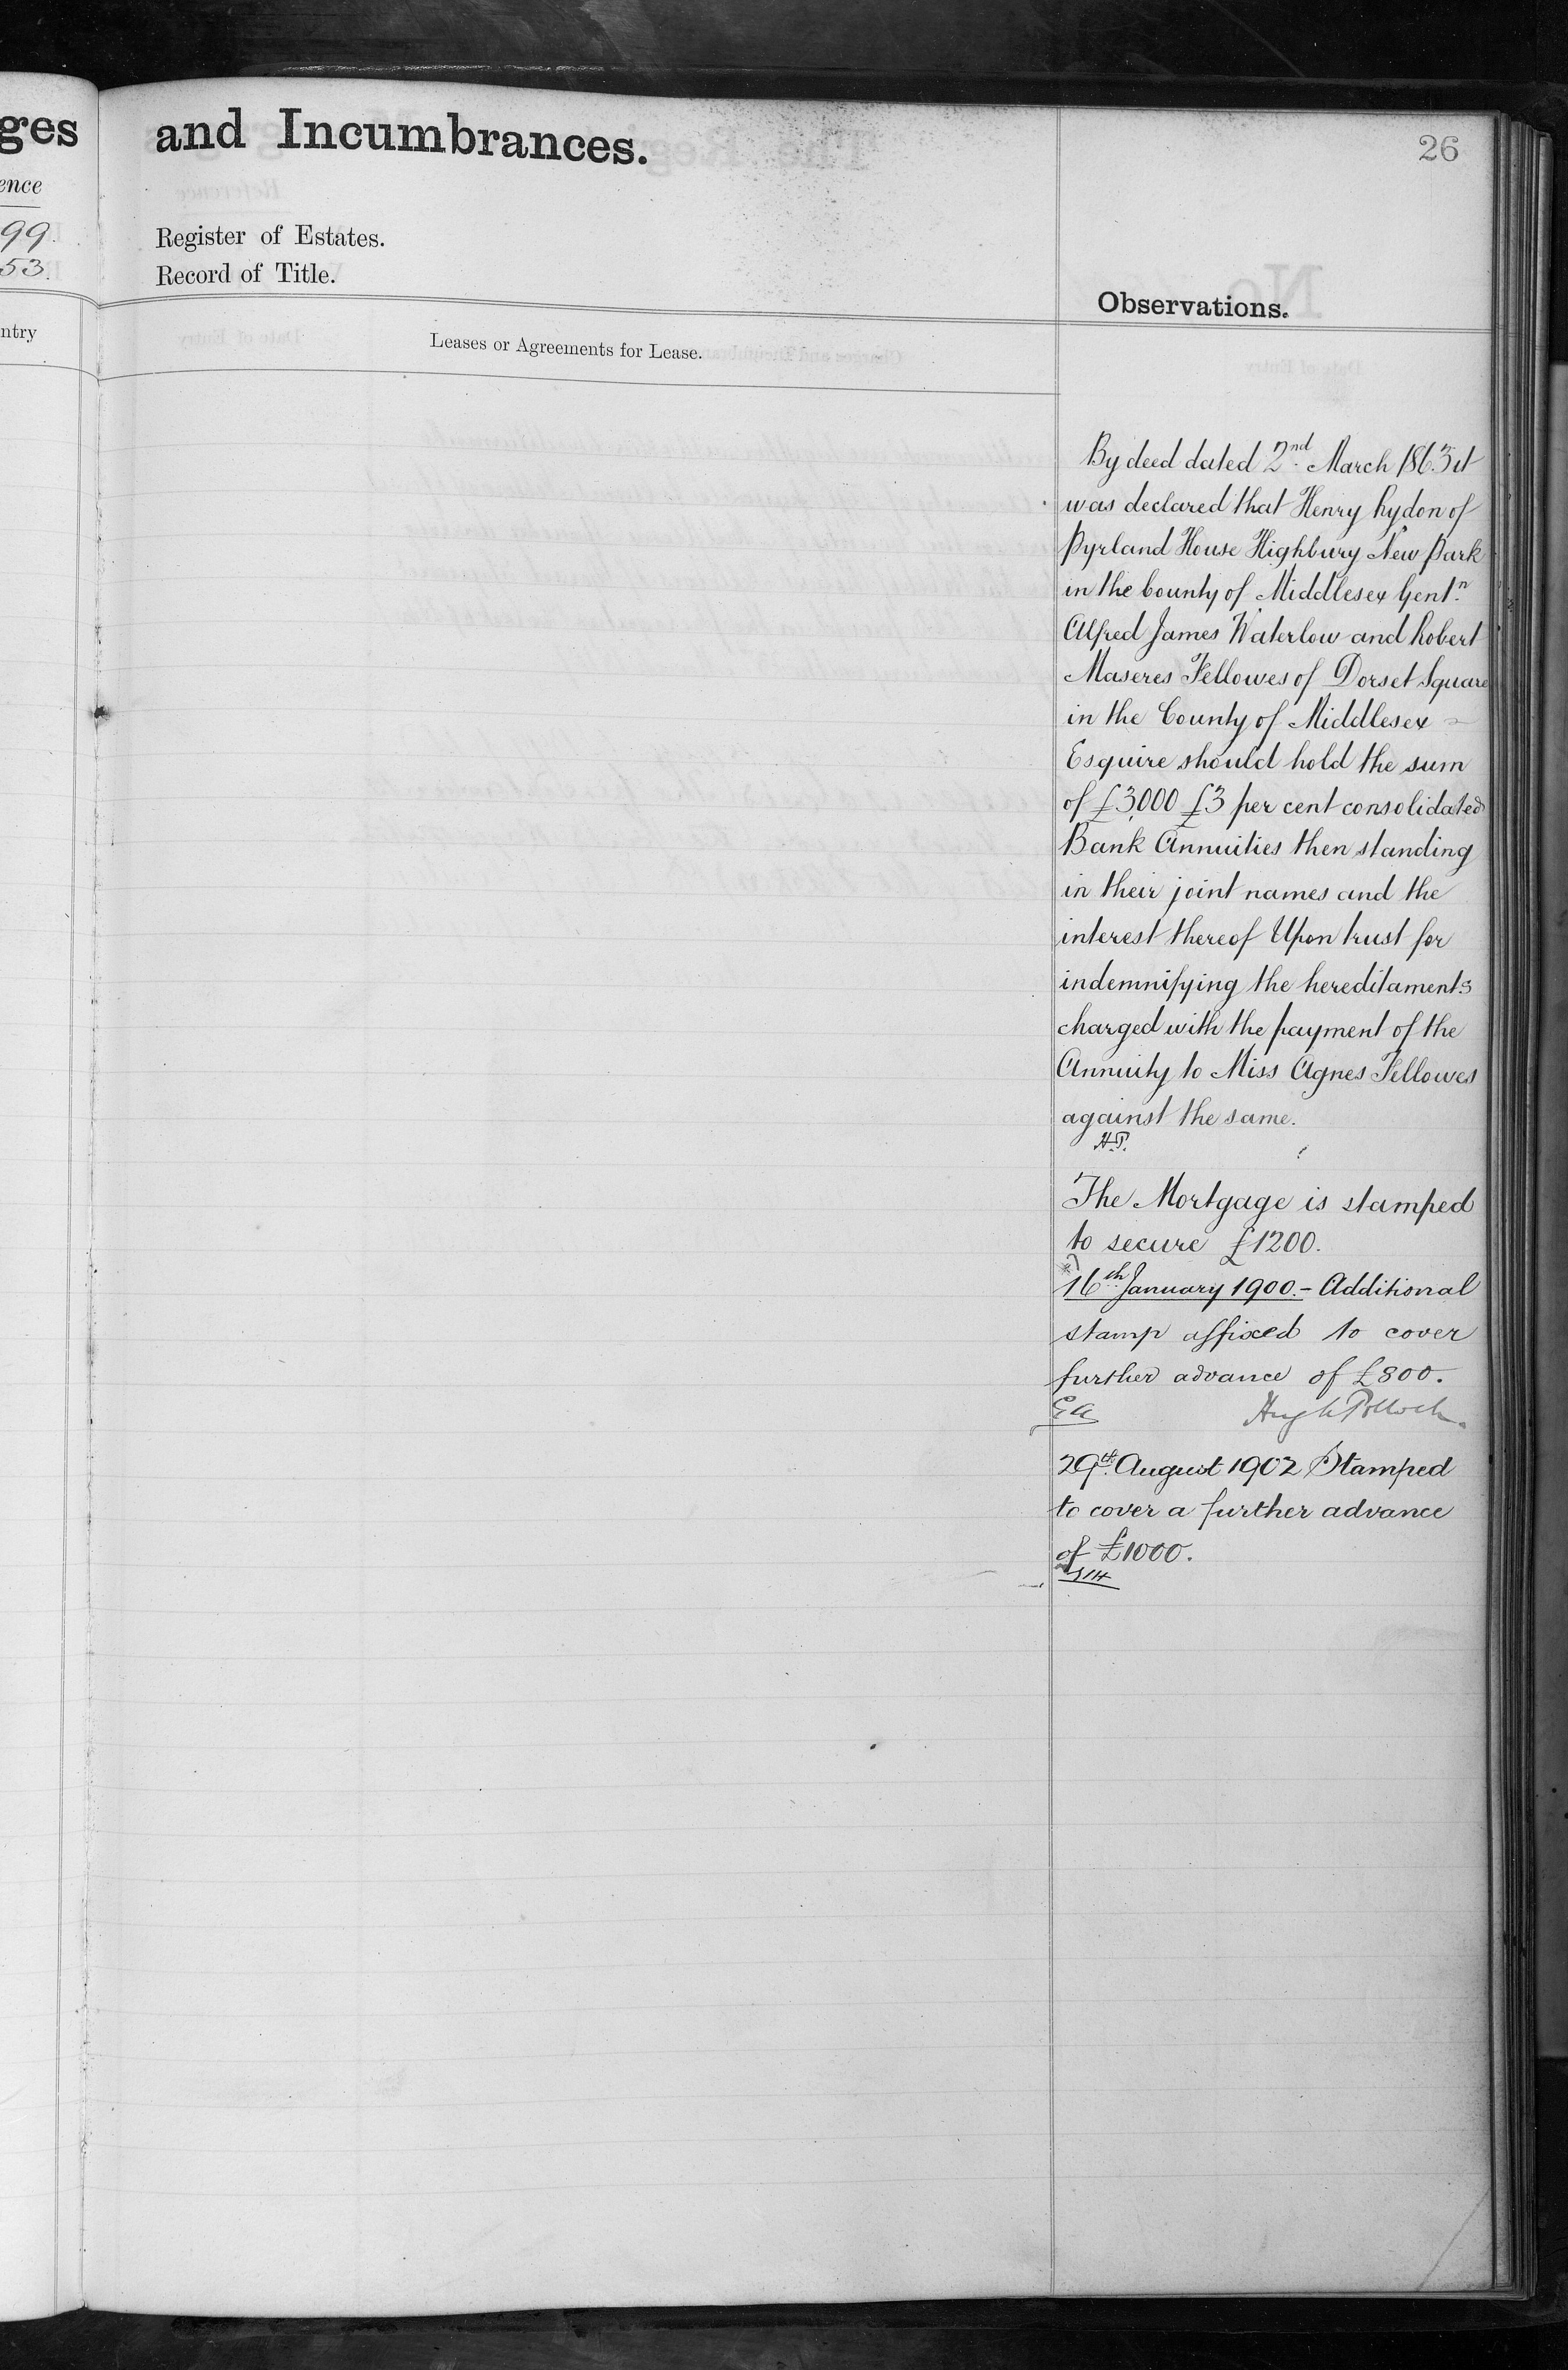 ges
and Incumbrances.
26
ence
99.
53.
Register of Estates.
Record of Title.
Observations.
ntry
Leases or Agreements for Lease.
By deed dated 2nd. March 1863 it
was declared that Henry Rydon of
Pyrland House Highbury New Park
in the County of Middlesex Gentn.
Alfred James Waterlow and Robert
Maseres Fellowes of Dorset Square
in the County of Middlesex
Esquire should hold the sum
of £3,000 £3 per cent consolidated
Bank Annuities then standing
in their joint names and the
interest thereof Upon trust for
indemnifying the hereditaments
charged with the payment of the
Annuity to Miss Agnes Fellowes
against the same.
H.P.
The Mortgage is stamped
to secure £1200.
16th January 1900.- Additional
stamp affixed to cover
further advance of £800.
Hugh Pollock.
29th. August 1902 Stamped
to cover a further advance
of £1000.